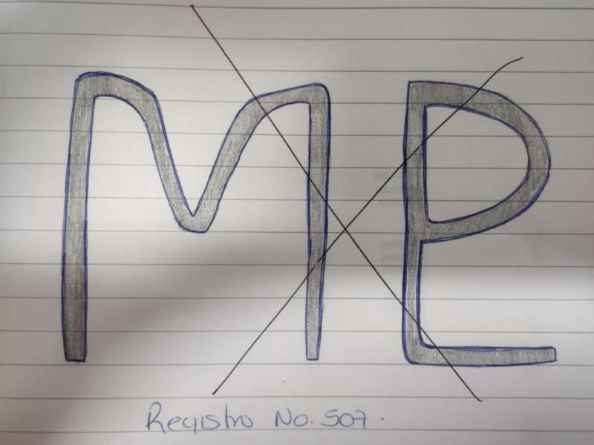 MP
Registro No. 507.